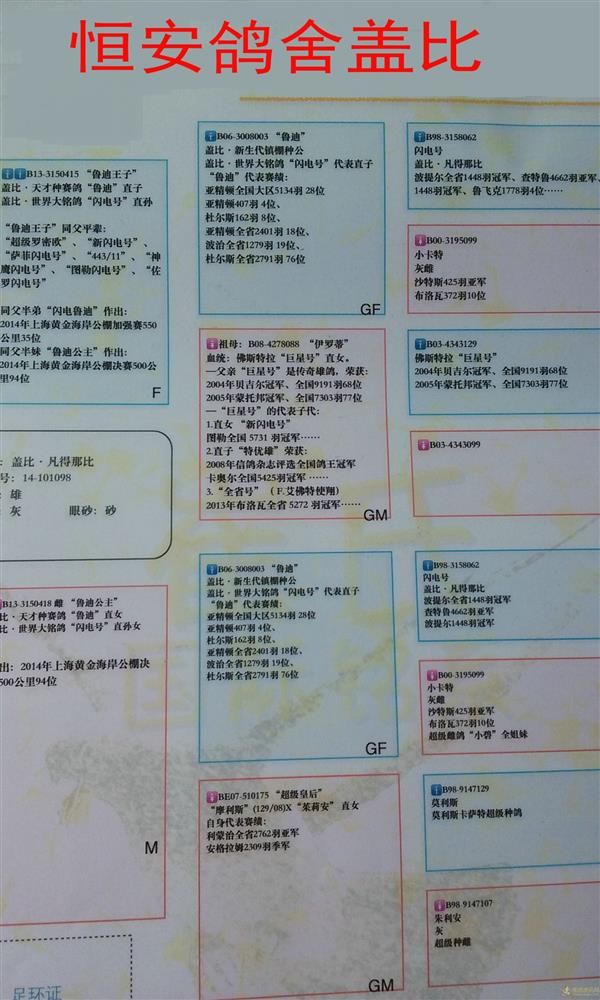 恒安鸽舍盖比
B13-3150415 “鲁迪王子”
盖比·天才种赛鸽“鲁迪”直子
盖比·世界大铭鸽“闪电号”直孙
“鲁迪王子”同父平辈:
“超级罗密欧”、“新闪电号”、
“萨菲闪电号”、“443/11”、“神
鹰闪电号”、“图勒闪电号”、“佐
罗闪电号”
同父半弟“闪电鲁迪”作出:
2014年上海黄金海岸公棚加强赛550
公里35位
同父半妹“鲁迪公主”作出:
2014年上海黄金海岸公棚决赛500公
里94位
F
: 盖比·凡得那比
号: 14-101098
: 雄
: 灰 眼砂: 砂
B13-3150418 雌 “鲁迪公主”
比·天才种赛鸽“鲁迪”直女
比·世界大铭鸽“闪电号”直孙女
出: 2014年上海黄金海岸公棚决
500公里94位
M
足环证
B06-3008003 “鲁迪”
盖比·新生代镇棚种公
盖比·世界大铭鸽“闪电号”代表直子
“鲁迪”代表赛绩:
亚精顿全国大区5134羽 28位
亚精顿407羽 4位、
杜尔斯162羽 8位、
亚精顿全省2401羽 18位、
波治全省1279羽 19位、
杜尔斯全省2791羽 76位
GF
祖母: B08-4278088 “伊罗蒂”
血统: 佛斯特拉“巨星号”直女。
—父亲“巨星号”是传奇雄鸽，荣获:
2004年贝吉尔冠军、全国9191羽68位
2005年蒙托邦冠军、全国7303羽77位
—“巨星号”的代表子代:
1.直女“新闪电号”
图勒全国 5731 羽冠军……
2.直子“特优雄”荣获:
2008年信鸽杂志评选全国鸽王冠军
卡奥尔全国5425羽冠军 ……
3.“全省号”（F.艾佛特使翔）
2013年布洛瓦全省 5272 羽冠军……
GM
B06-3008003 “鲁迪”
盖比·新生代镇棚种公
盖比·世界大铭鸽“闪电号”代表直子
“鲁迪”代表赛绩:
亚精顿全国大区5134羽 28位
亚精顿407羽 4位、
杜尔斯162羽 8位、
亚精顿全省2401羽 18位、
波治全省1279羽 19位、
杜尔斯全省2791羽 76位
GF
BE07-510175 “超级皇后”
“摩利斯”(129/08)X“茱莉安” 直女
自身代表赛绩:
利蒙治全省2762羽亚军
安格拉姆2309羽季军
GM
B98-3158062
闪电号
盖比·凡得那比
波提尔全省1448羽冠军、查特鲁4662羽亚军、
1448羽冠军、鲁飞克1778羽4位……
B00-3195099
小卡特
灰雌
沙特斯425羽亚军
布洛瓦372羽10位
B03-4343129
佛斯特拉“巨星号”
2004年贝吉尔冠军、全国9191羽68位
2005年蒙托邦冠军、全国7303羽77位
B03-4343099
B98-3158062
闪电号
盖比·凡得那比
波提尔全省1448羽冠军
查特鲁4662羽亚军
波提尔1448羽冠军
B00-3195099
小卡特
灰雌
沙特斯425羽亚军
布洛瓦372羽10位
超级雌鸽“小碧”全姐妹
B98-9147129
莫利斯
莫利斯卡萨特超级种鸽
B98-9147107
朱利安
灰
超级种雌